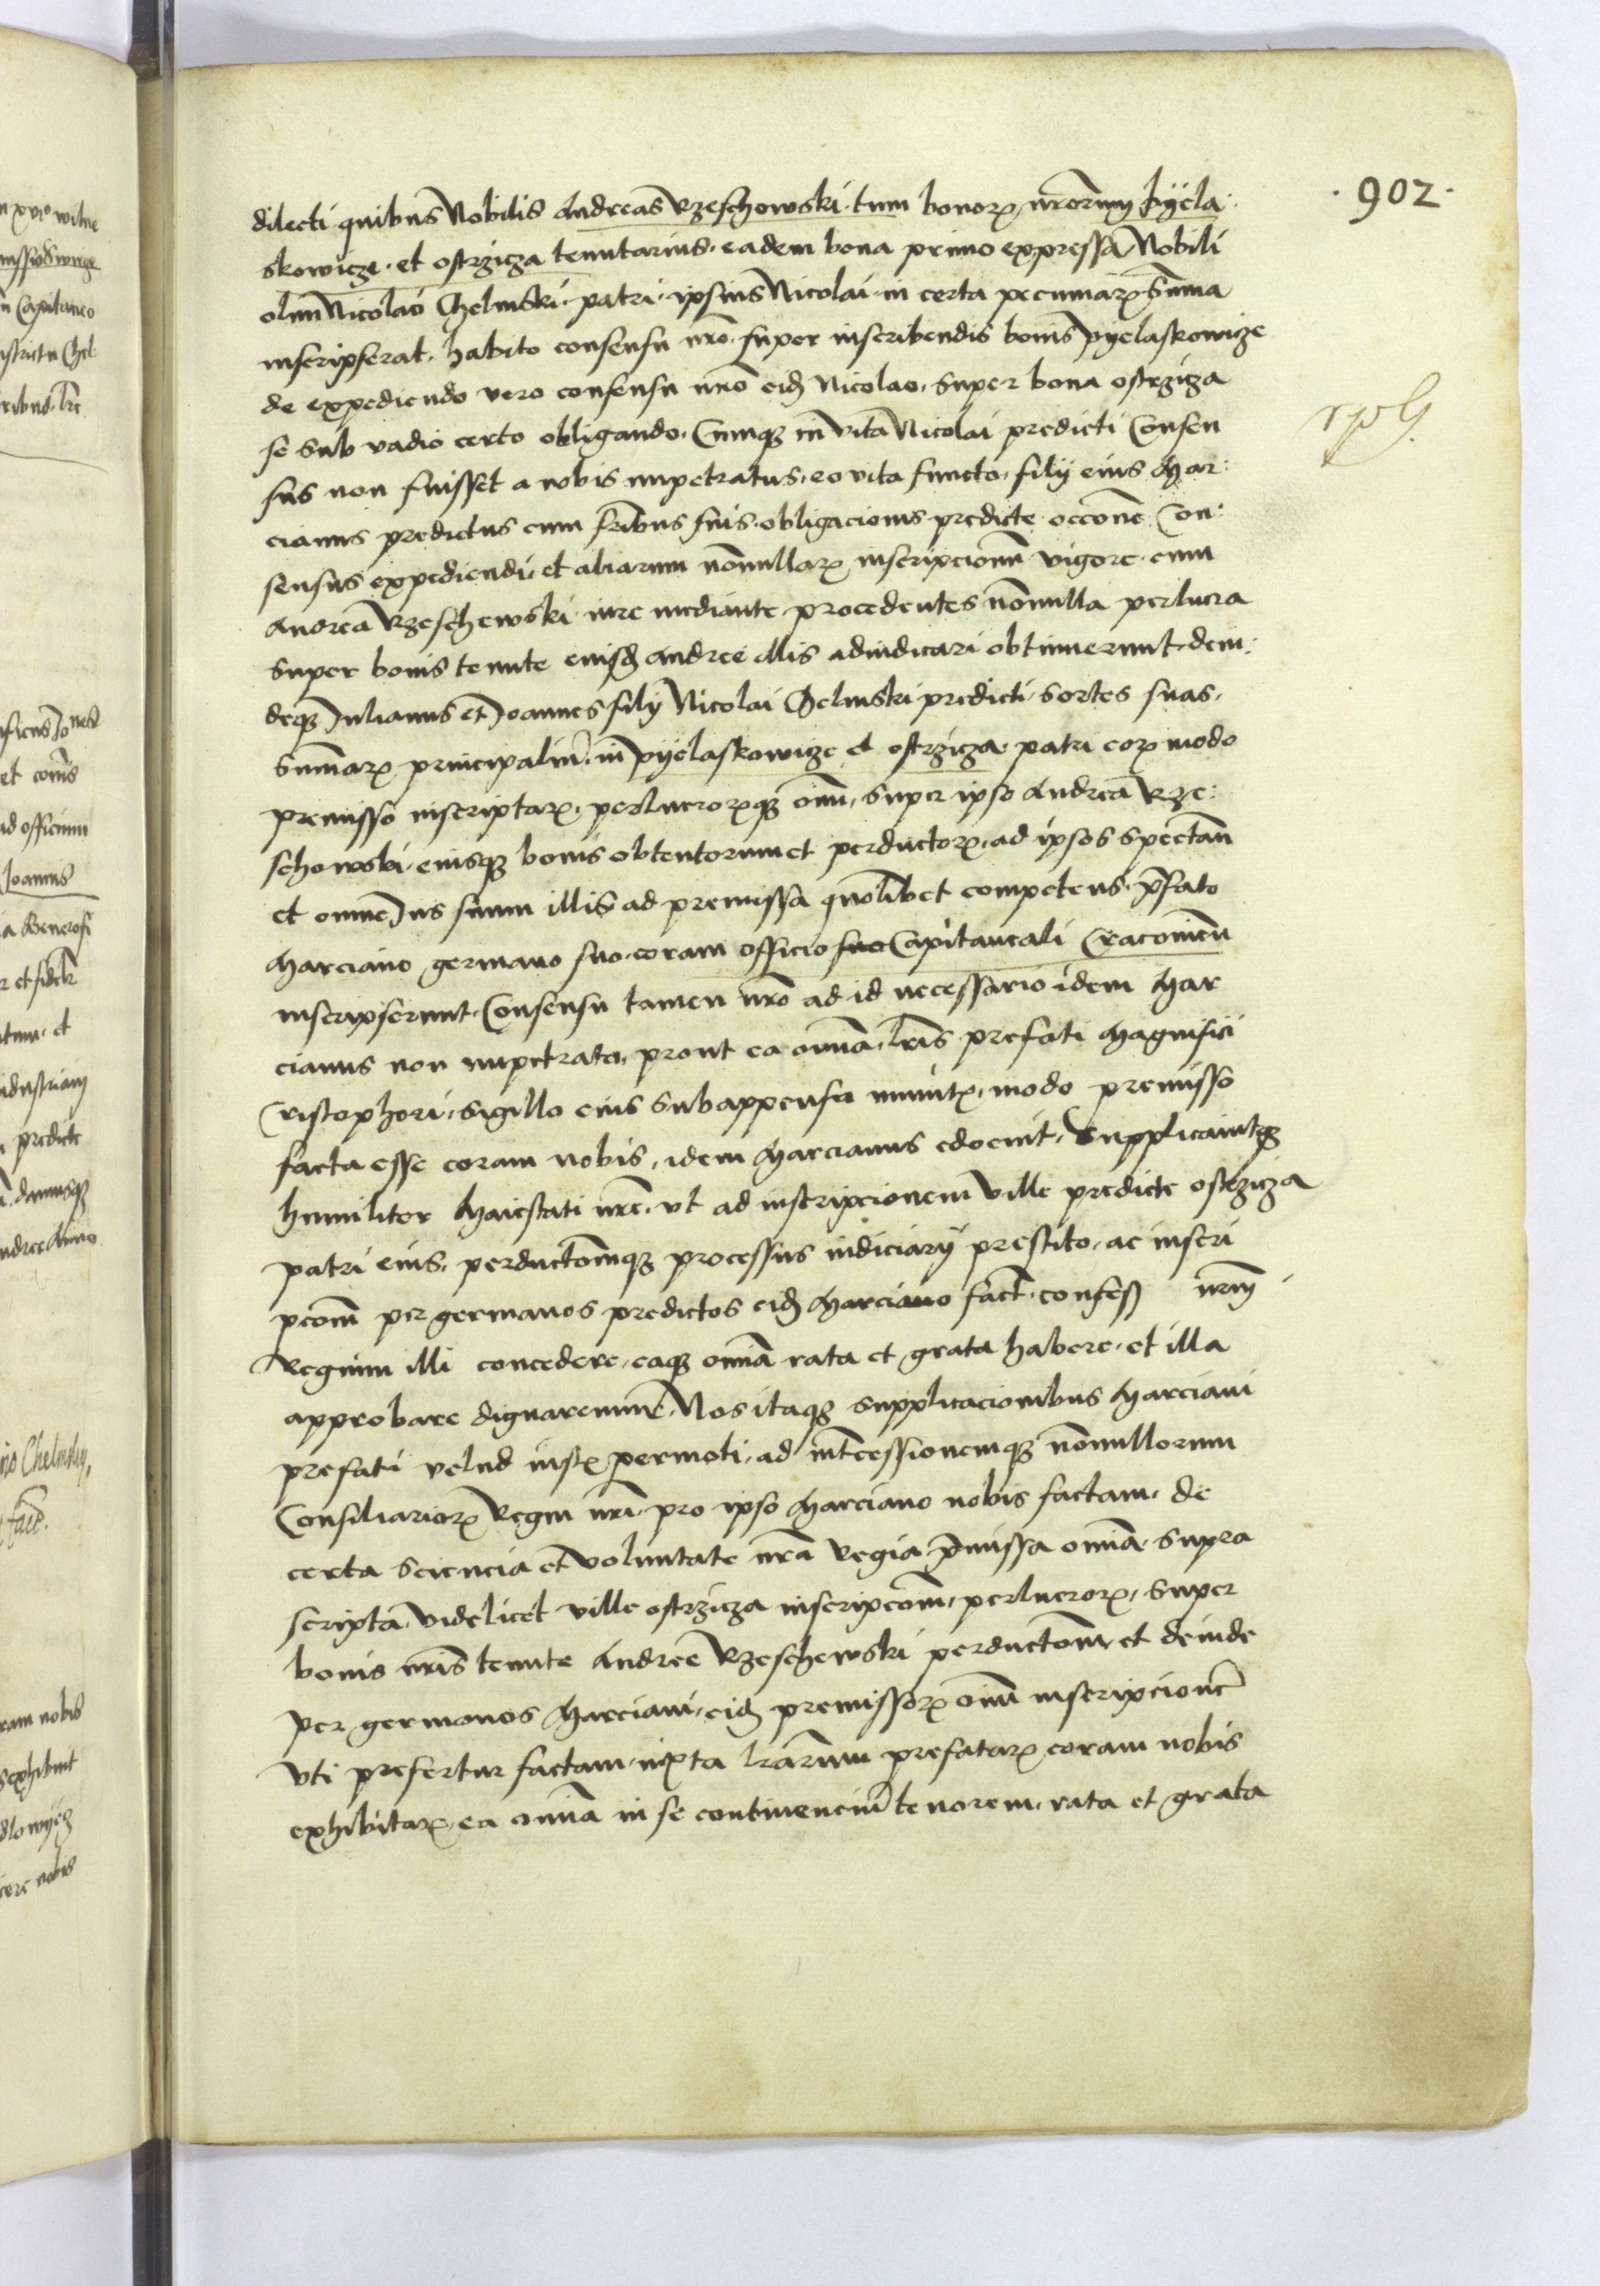 · 902 ·
dilecti quibus Nobilis Andreas Rzeschowski tum bonorꝝ nrõrum pyela:
skowicze et ostrzicza tenutarius eadem bona primo expressa Nobili
olim Nicolao Chelmski patri ipsius Nicolai in certa pecuniarꝝ sũma
inscripserat habito consensu nrõ super inscribendis bonis pyelaskowicze
de expediendo vero consensu nrõ eidẽ Nicolao super bona ostrzicza
se sub vadio certo obligando Cumqꝫ in vita Nicolai predicti Consen
sus non fuisset a nobis impetratus eo vita functo filij eius Mar:
cianus predictus cum fribus suis obligacionis predicte occõne Con:
sensus expediendi et aliarum nõnullarꝝ inscripcionũ vigore cum
Andrea Rzeschewski iure mediante procedentes nõnulla perlucra
super bonis tenute eiusdẽ Andree illis adiudicari obtinuerunt dein:
deqꝫ Julianus et Joannes filij Nicolai Chelmski predicti sortes suas
sũmarꝝ principaliũ in pyelaskowicze et ostrzicza patri eorꝝ modo
premisso inscriptarꝝ perlucrorꝝqꝫ oĩm super ipso Andrea Rze:
schowski eiusqꝫ bonis obtentorum et perductorꝝ ad ipsos spectañ
et omne Jus suum illis ad premissa quolibet competens p̃fato
Marciano germano suo coram officio suo Capitaneali Cracovieñ
inscripserunt Consensu tamen nrõ ad id necessario idem Mar
cianus non impetrato prout ea omnia lris prefati Magnifici
Cristophori sigillo eius subappenso munitꝭ modo premisso
facta esse coram nobis idem Marcianus edocuit Supplicavitqꝫ
humiliter Maiestati nre vt ad inscripcionem ville predicte ostrzicza
patri eius perductõmqꝫ processus iudiciarij prestito ac inscri
pcõm per germanos predictos eidẽ Marciano fact confess nrm
Regium illi concedere eaqꝫ omĩa rata et grata habere et illa
approbare dignaremur Nos itaqꝫ supplicacionibus Marciani
prefati velud iustꝭ permoti ad int̃cessionemqꝫ nõnullorum
Consiliariorꝝ Regni nri pro ipso Marciano nobis factam de
certa sciencia et voluntate nra Regia p̃missa omĩa supra
scripta videlicet ville ostrzicza inscripcõm perlucrorꝝ super
bonis nris tenute Andree Rzeschewski perductõm et deinde
per germanos Marciani eidẽ premissorꝝ oĩm inscripcionẽ
vti prefertur factam iuxta lrarum prefatarꝝ coram nobis
exhibitarꝝ ea omĩa in se continenciũ tenorem rata et grata